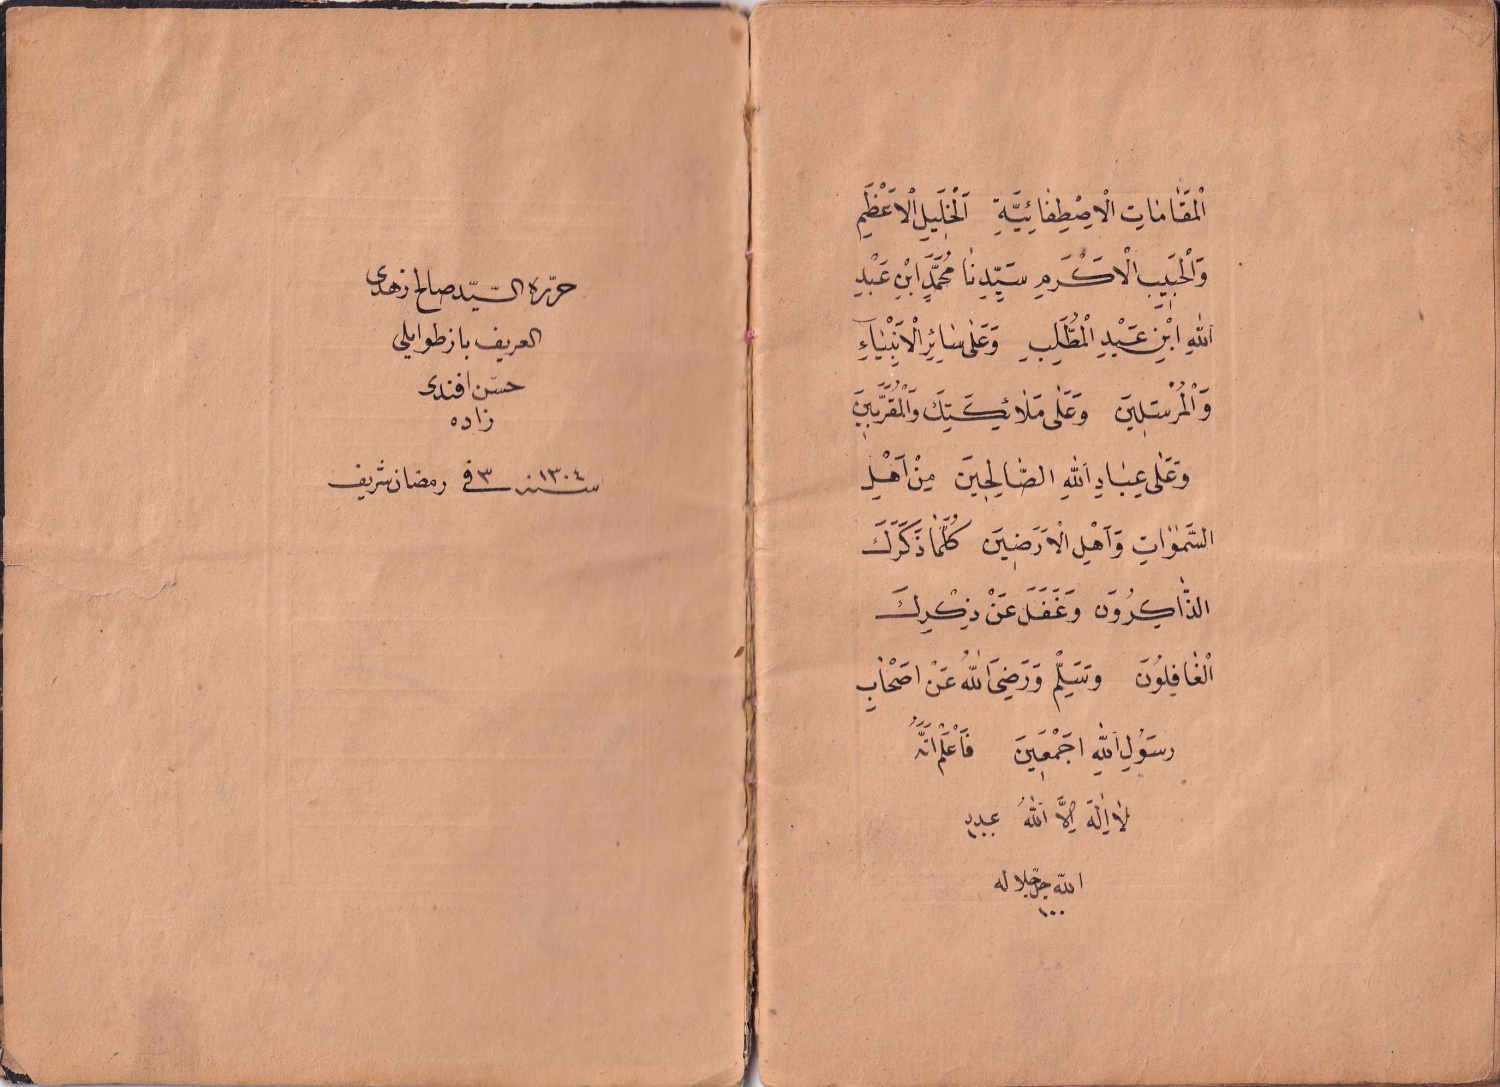 الْمَقَامَاتِ الْاِصْطِفَائِيَّةِ اَلْخَلِيلِ الْاَعْظَمِ
وَالْحَبِيبِ الْاَكْرَمِ سَيِّدِنَا مُحَمَّدٍ ابْنِ عَبْدِ
اللهِ ابْنِ عَبْدِ الْمُطَّلِبِ وَعَلٰى سَائِرِ الْاَنْبِيَاۤءِ
وَالْمُرْسَلِينَ وَعَلٰى مَلَائِكَتِكَ وَالْمُقَرَّبِينَ
وَعَلٰى عِبَادِ اللهِ الصَّالِحِينَ مِنْ اَهْلِ
السَّمٰوَاتِ وَاَهْلِ الْاَرَضِينَ كُلَّمَا ذَكَرَكَ
الذَّاكِرُونَ وَغَفَلَ عَنْ ذِكْرِكَ
الْغَافِلُونَ وَسَلِّمْ وَرَضِيَ اللهُ عَنْ اَصْحَابِ
رَسُولِ اللهِ اَجْمَعِينَ فَاعْلَمْ اَنَّهُ
لَا اِلٰهَ اِلَّا اللهُ عدد ١٠٠
الله جل جلاله
١٠٠
حرّره السّيّد صالح زهدى
العريف
حسن افندى
زاده
سنه ١٣٠٤ فى ٣ رمضان شريف